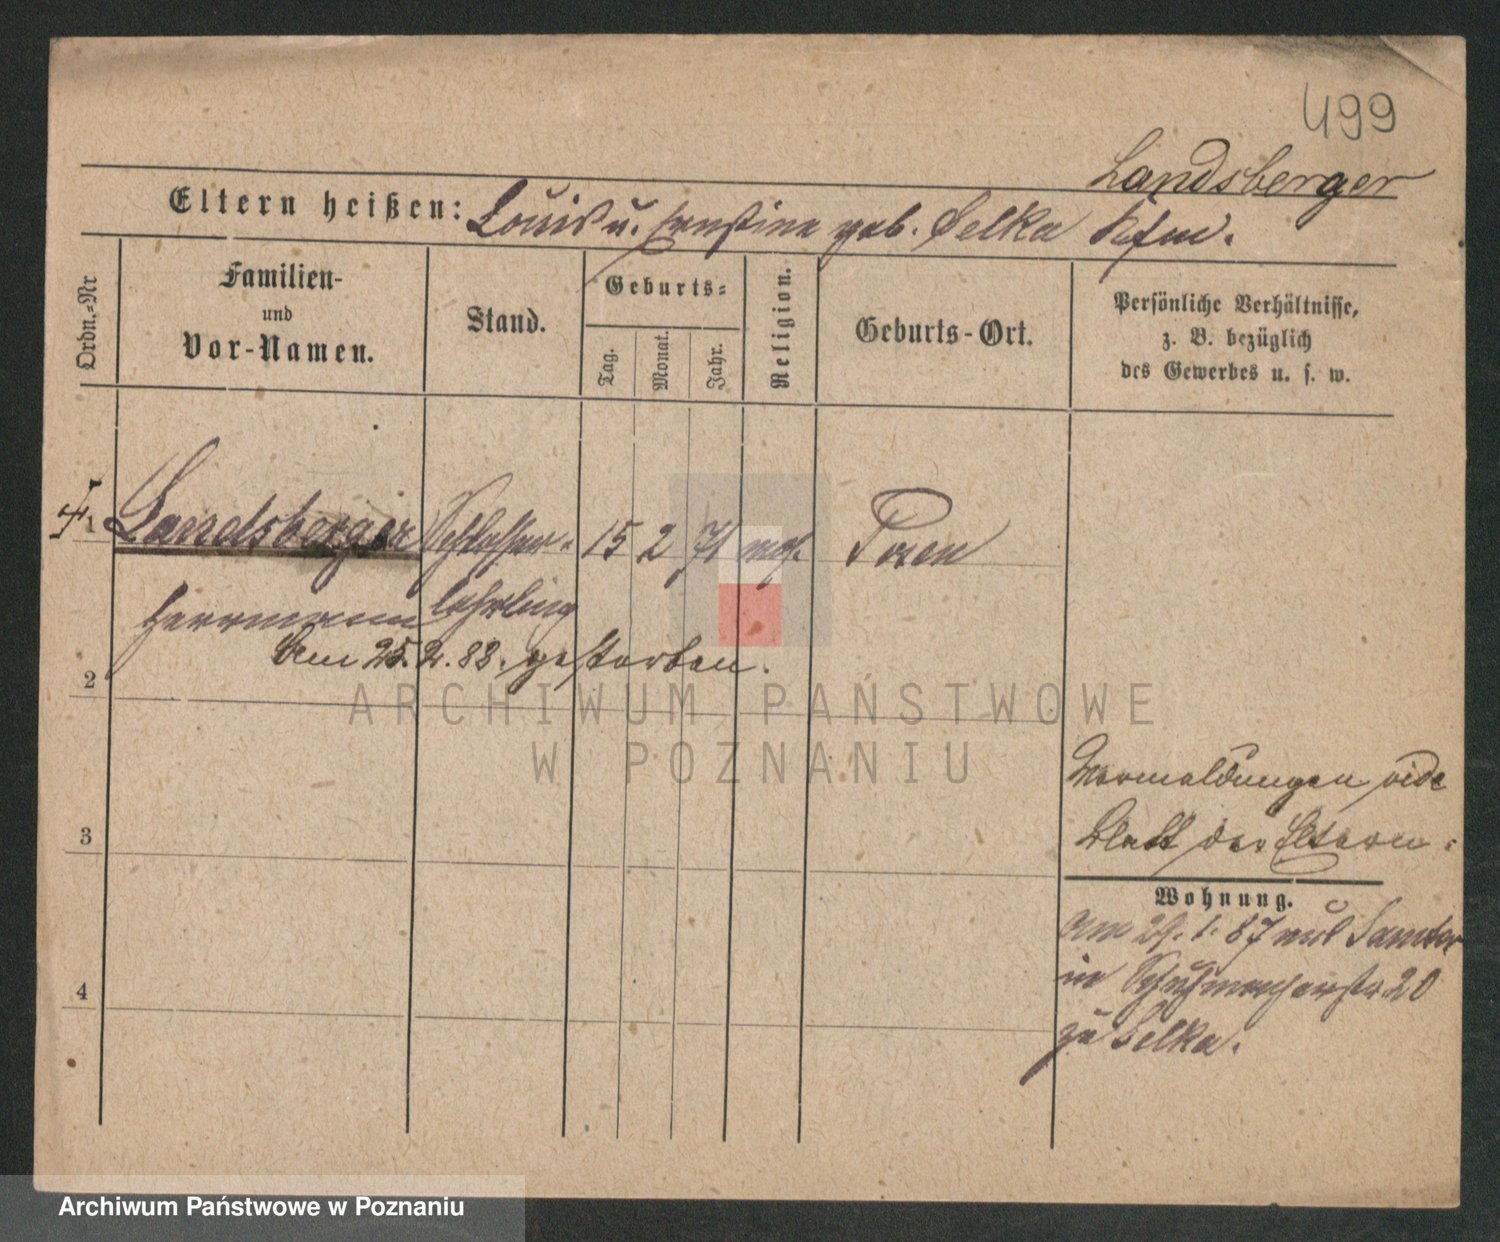 499
Landsberger
Eltern heißen: Louis u. Ernstine geb. Selka Kfm.
Ordn.-Nr
Familien-
und
Vor-Namen.
Stand.
Geburts-
Tag.
Monat.
Jahr.
Religion.
Geburts-Ort.
Persönliche Verhältnisse,
z. B. bezüglich
des Gewerbes u. s. w.
1 Landsberger Schlosser- 15 2 71 mos. Posen
Herrmann lehrling
Am 25. 2. 88. gestorben.
2
ARCHIWUM PAŃSTWOWE
W POZNANIU
3
4
Vermeldungen vide
Blatt der Eltern.
Wohnung.
Am 29. 1. 87 aus Samter
in Schuhmacherstr. 20
zu Selka.
Archiwum Państwowe w Poznaniu